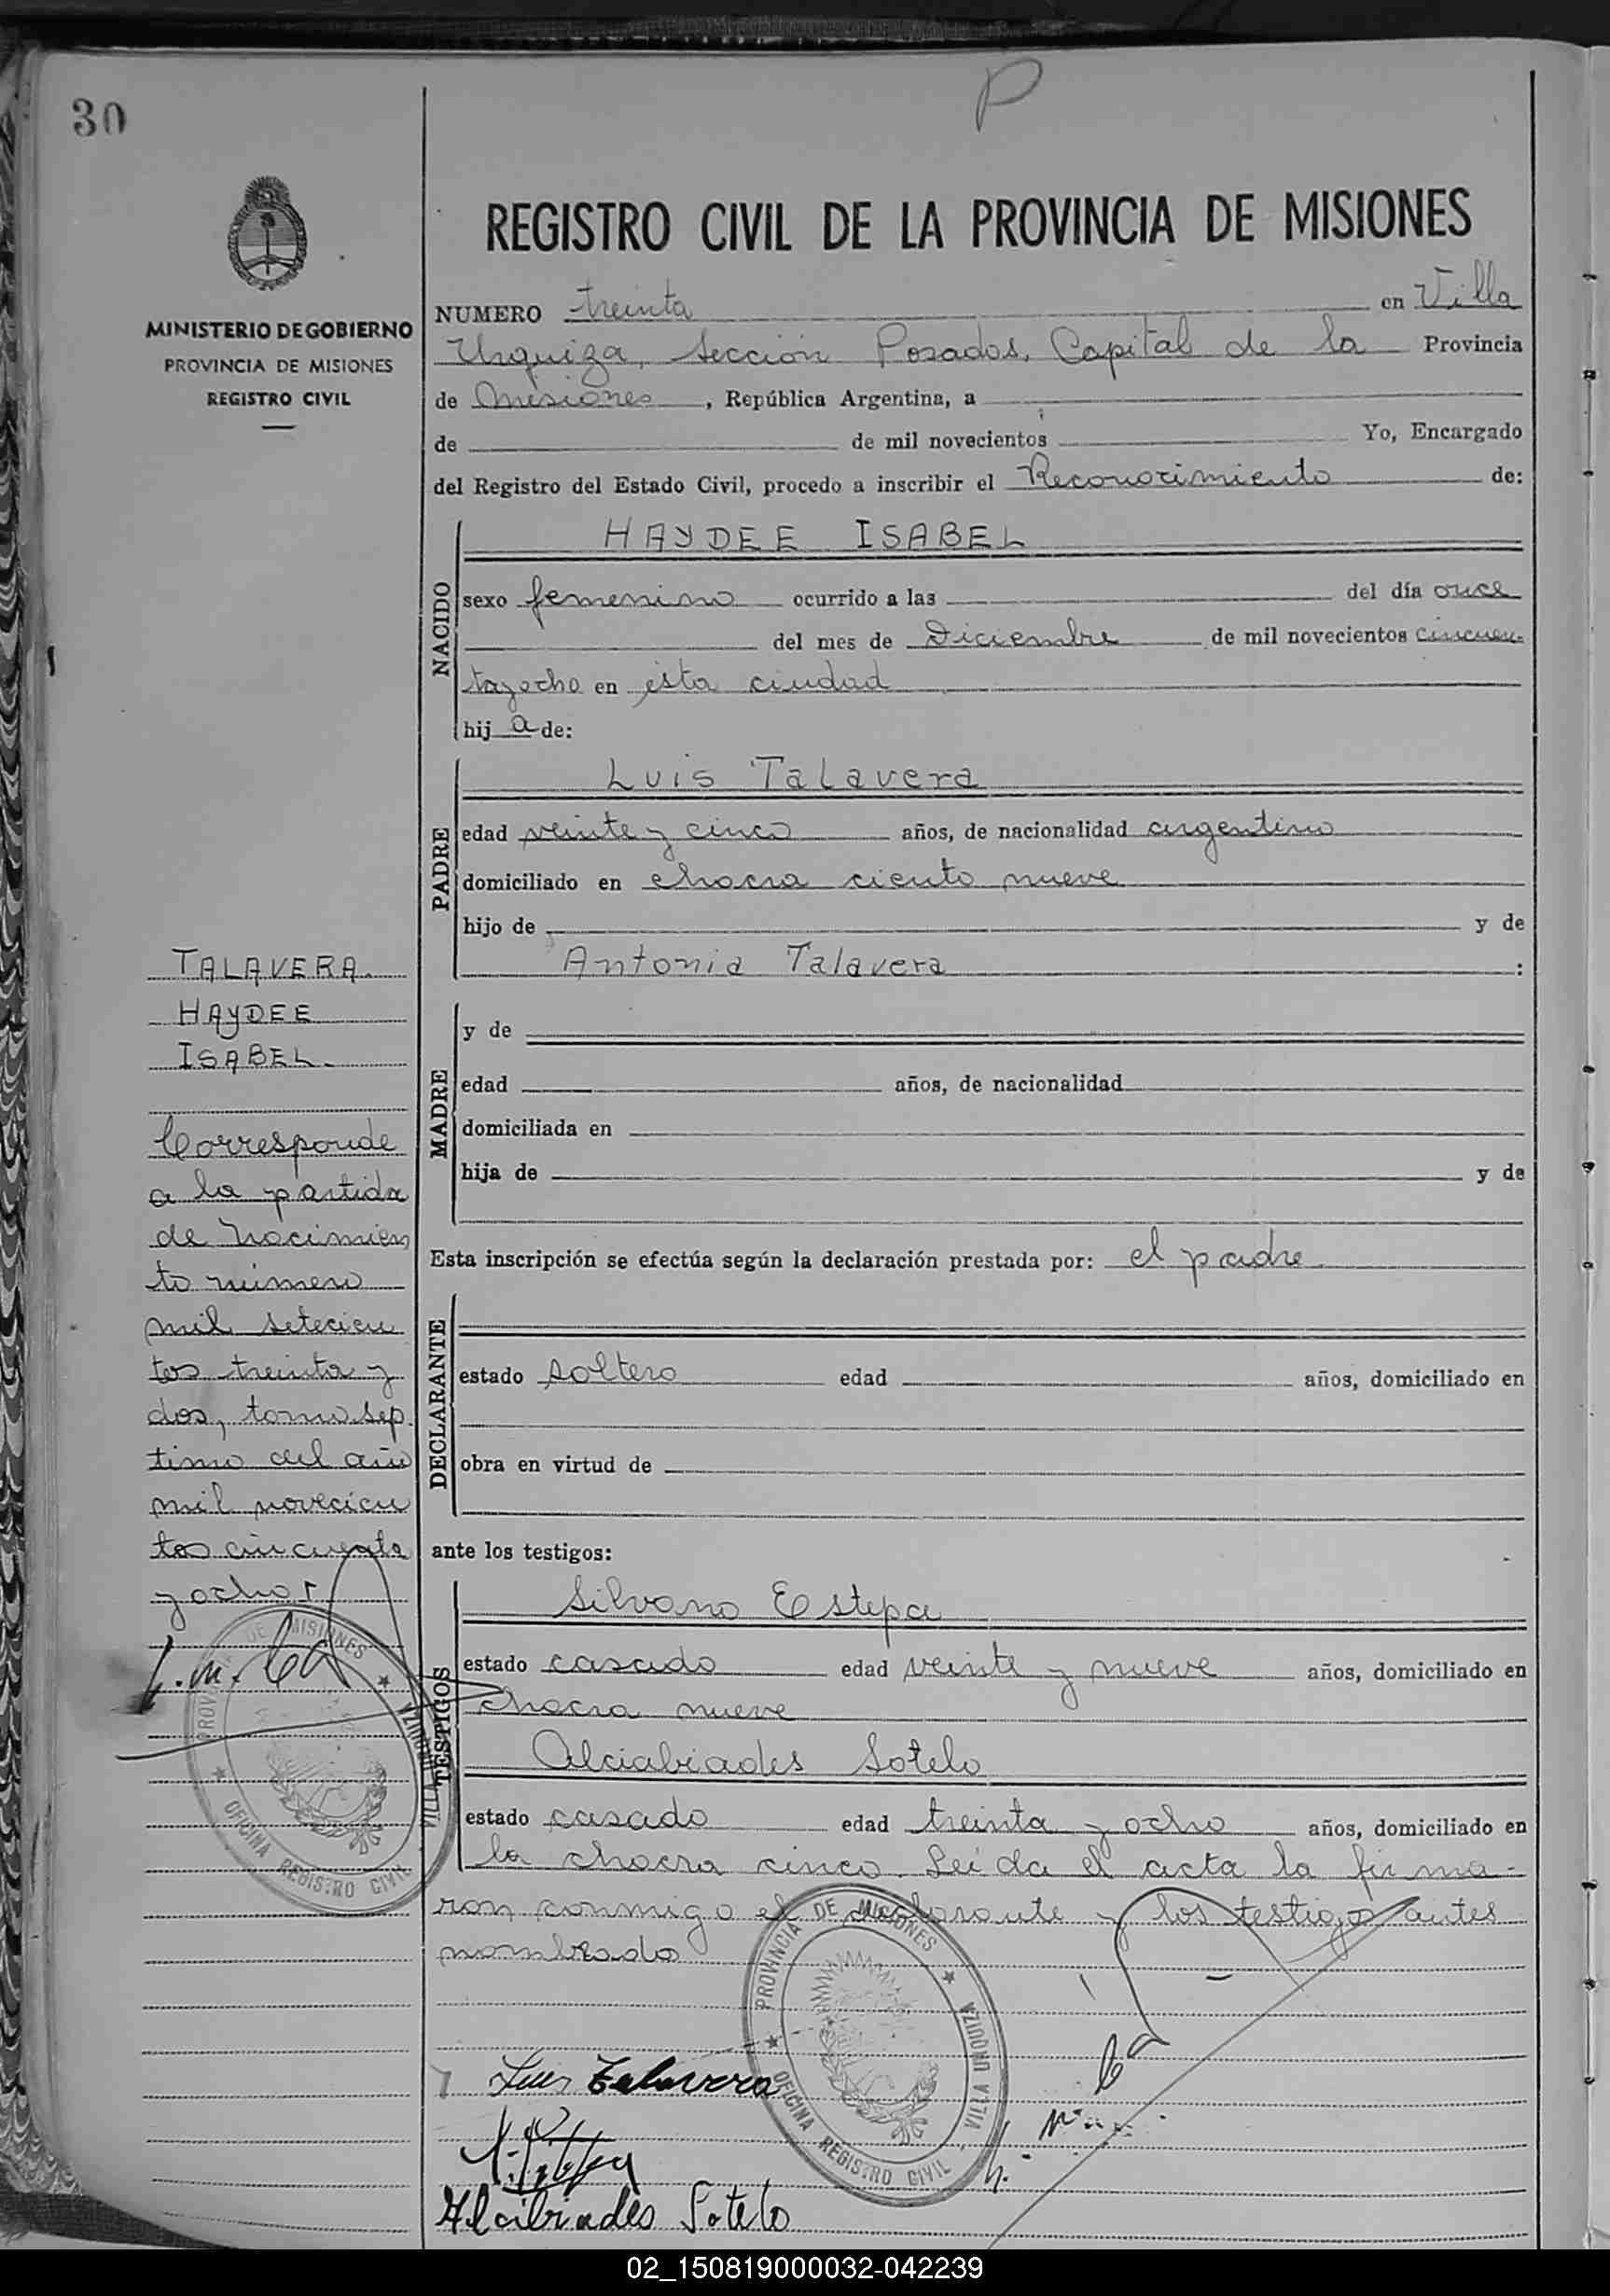 30
P
MINISTERIO DE GOBIERNO
PROVINCIA DE MISIONES
REGISTRO CIVIL
REGISTRO CIVIL DE LA PROVINCIA DE MISIONES
NUMERO treinta en Villa
Urquiza, Sección Posadas, Capital de la Provincia
de Misiones, República Argentina, a
de de mil novecientos Yo, Encargado
del Registro del Estado Civil, procedo a inscribir el Reconocimiento de:
NACIDO
HAYDEE ISABEL
sexo femenino ocurrido a las del día once
del mes de Diciembre de mil novecientos cincuen-
tayocho en esta ciudad
hija de:
PADRE
Luis Talavera
edad veinte y cinco años, de nacionalidad argentino
domiciliado en chacra ciento nueve
hijo de y de
Antonia Talavera :
MADRE
y de
edad años, de nacionalidad
domiciliada en
hija de y de
Esta inscripción se efectúa según la declaración prestada por: el padre
DECLARANTE
estado soltero edad años, domiciliado en
obra en virtud de
ante los testigos:
TESTIGOS
Silvano Estepa
estado casado edad veinte y nueve años, domiciliado en
chacra nueve
Alciabiades Sotelo
estado casado edad treinta y ocho años, domiciliado en
la chacra cinco. Leída el acta la firma-
ron conmigo el declarante y los testigos antes
nombrado
TALAVERA.
HAYDEE
ISABEL.
Corresponde
a la partida
de Nacimien
to número
mil setecien
tos treinta y
dos, tomo sep
timo del año
mil novecien
tos cincuenta
y ocho
PROVINCIA DE MISIONES ★ VILLA URQUIZA
★ OFICINA REGISTRO CIVIL
PROVINCIA DE MISIONES ★ VILLA URQUIZA
★ OFICINA REGISTRO CIVIL
Luis Talavera
Alcibiades Sotelo
02_150819000032-042239